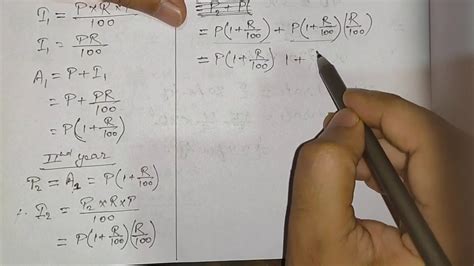 I₁ = P×R×1/100
I₁ = PR/100
A₁ = P + I₁
= P + PR/100
= P(1 + R/100)
IInd year
P₂ = A₁ = P(1 + R/100)
∴ I₂ = P₂×R×1/100
= P(1 + R/100)(R/100)
= P₂ + I₂
= P(1 + R/100) + P(1 + R/100)(R/100)
= P(1 + R/100) 1 +